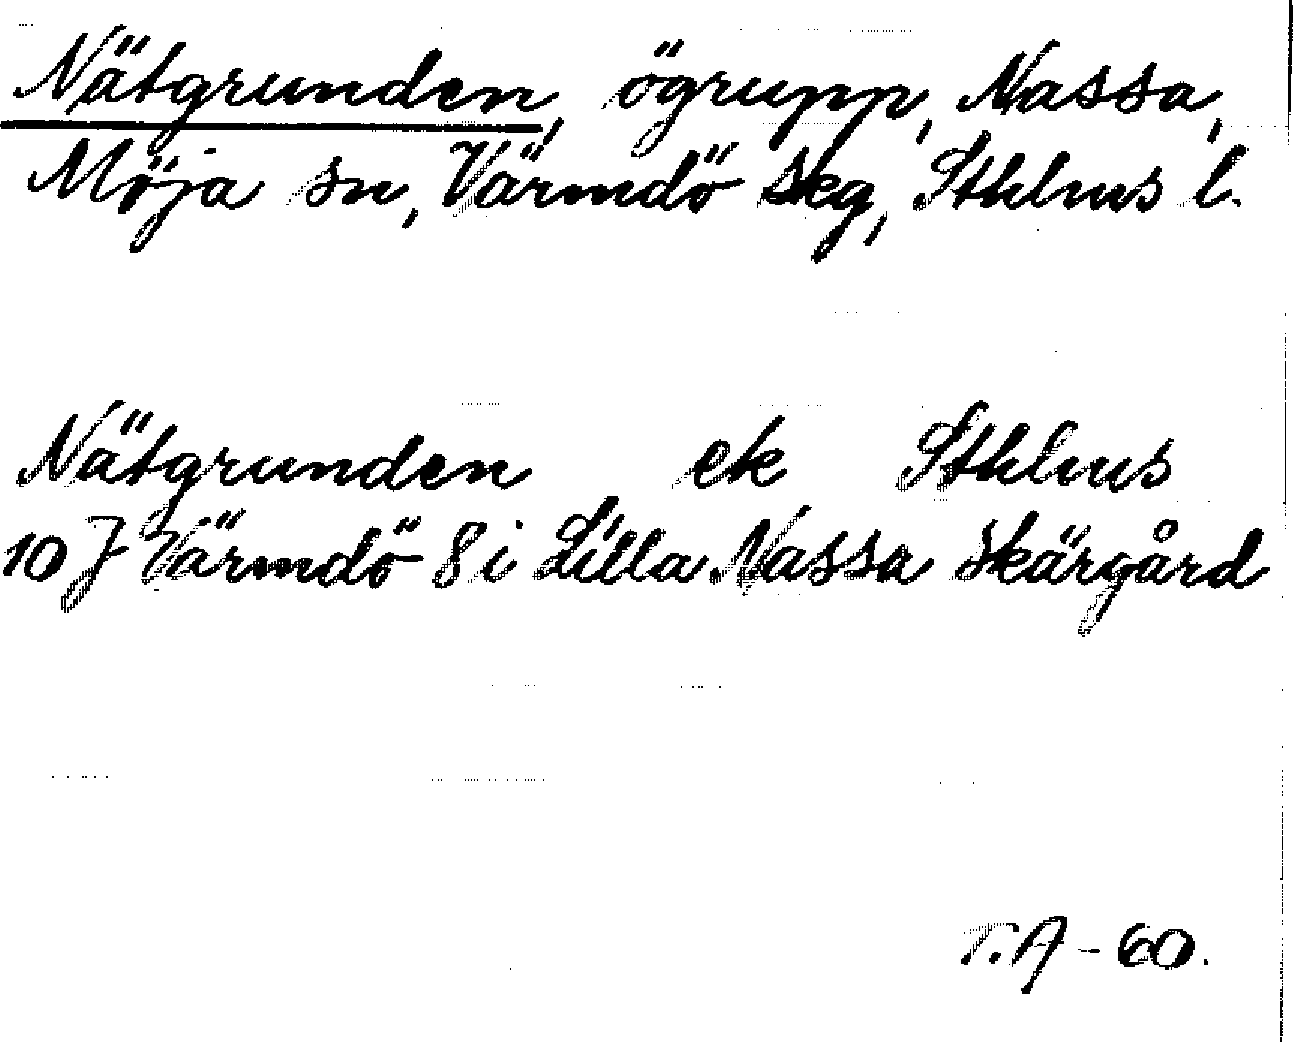 Nätgrunden, ögrupp, Nassa,
Möja sn, Värmdö skg, Sthlms l.
Nätgrunden ek Sthlms
10 J Värmdö 8 i Lilla Nassa skärgård
T.A - 60.